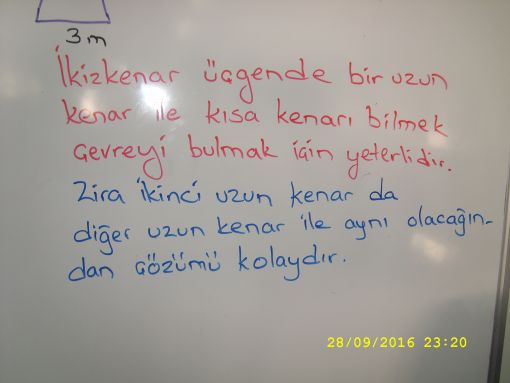 3 m
İkizkenar üçgende bir uzun
kenar ile kısa kenarı bilmek
çevreyi bulmak için yeterlidir.
Zira ikinci uzun kenar da
diğer uzun kenar ile aynı olacağın-
dan çözümü kolaydır.
28/09/2016 23:20